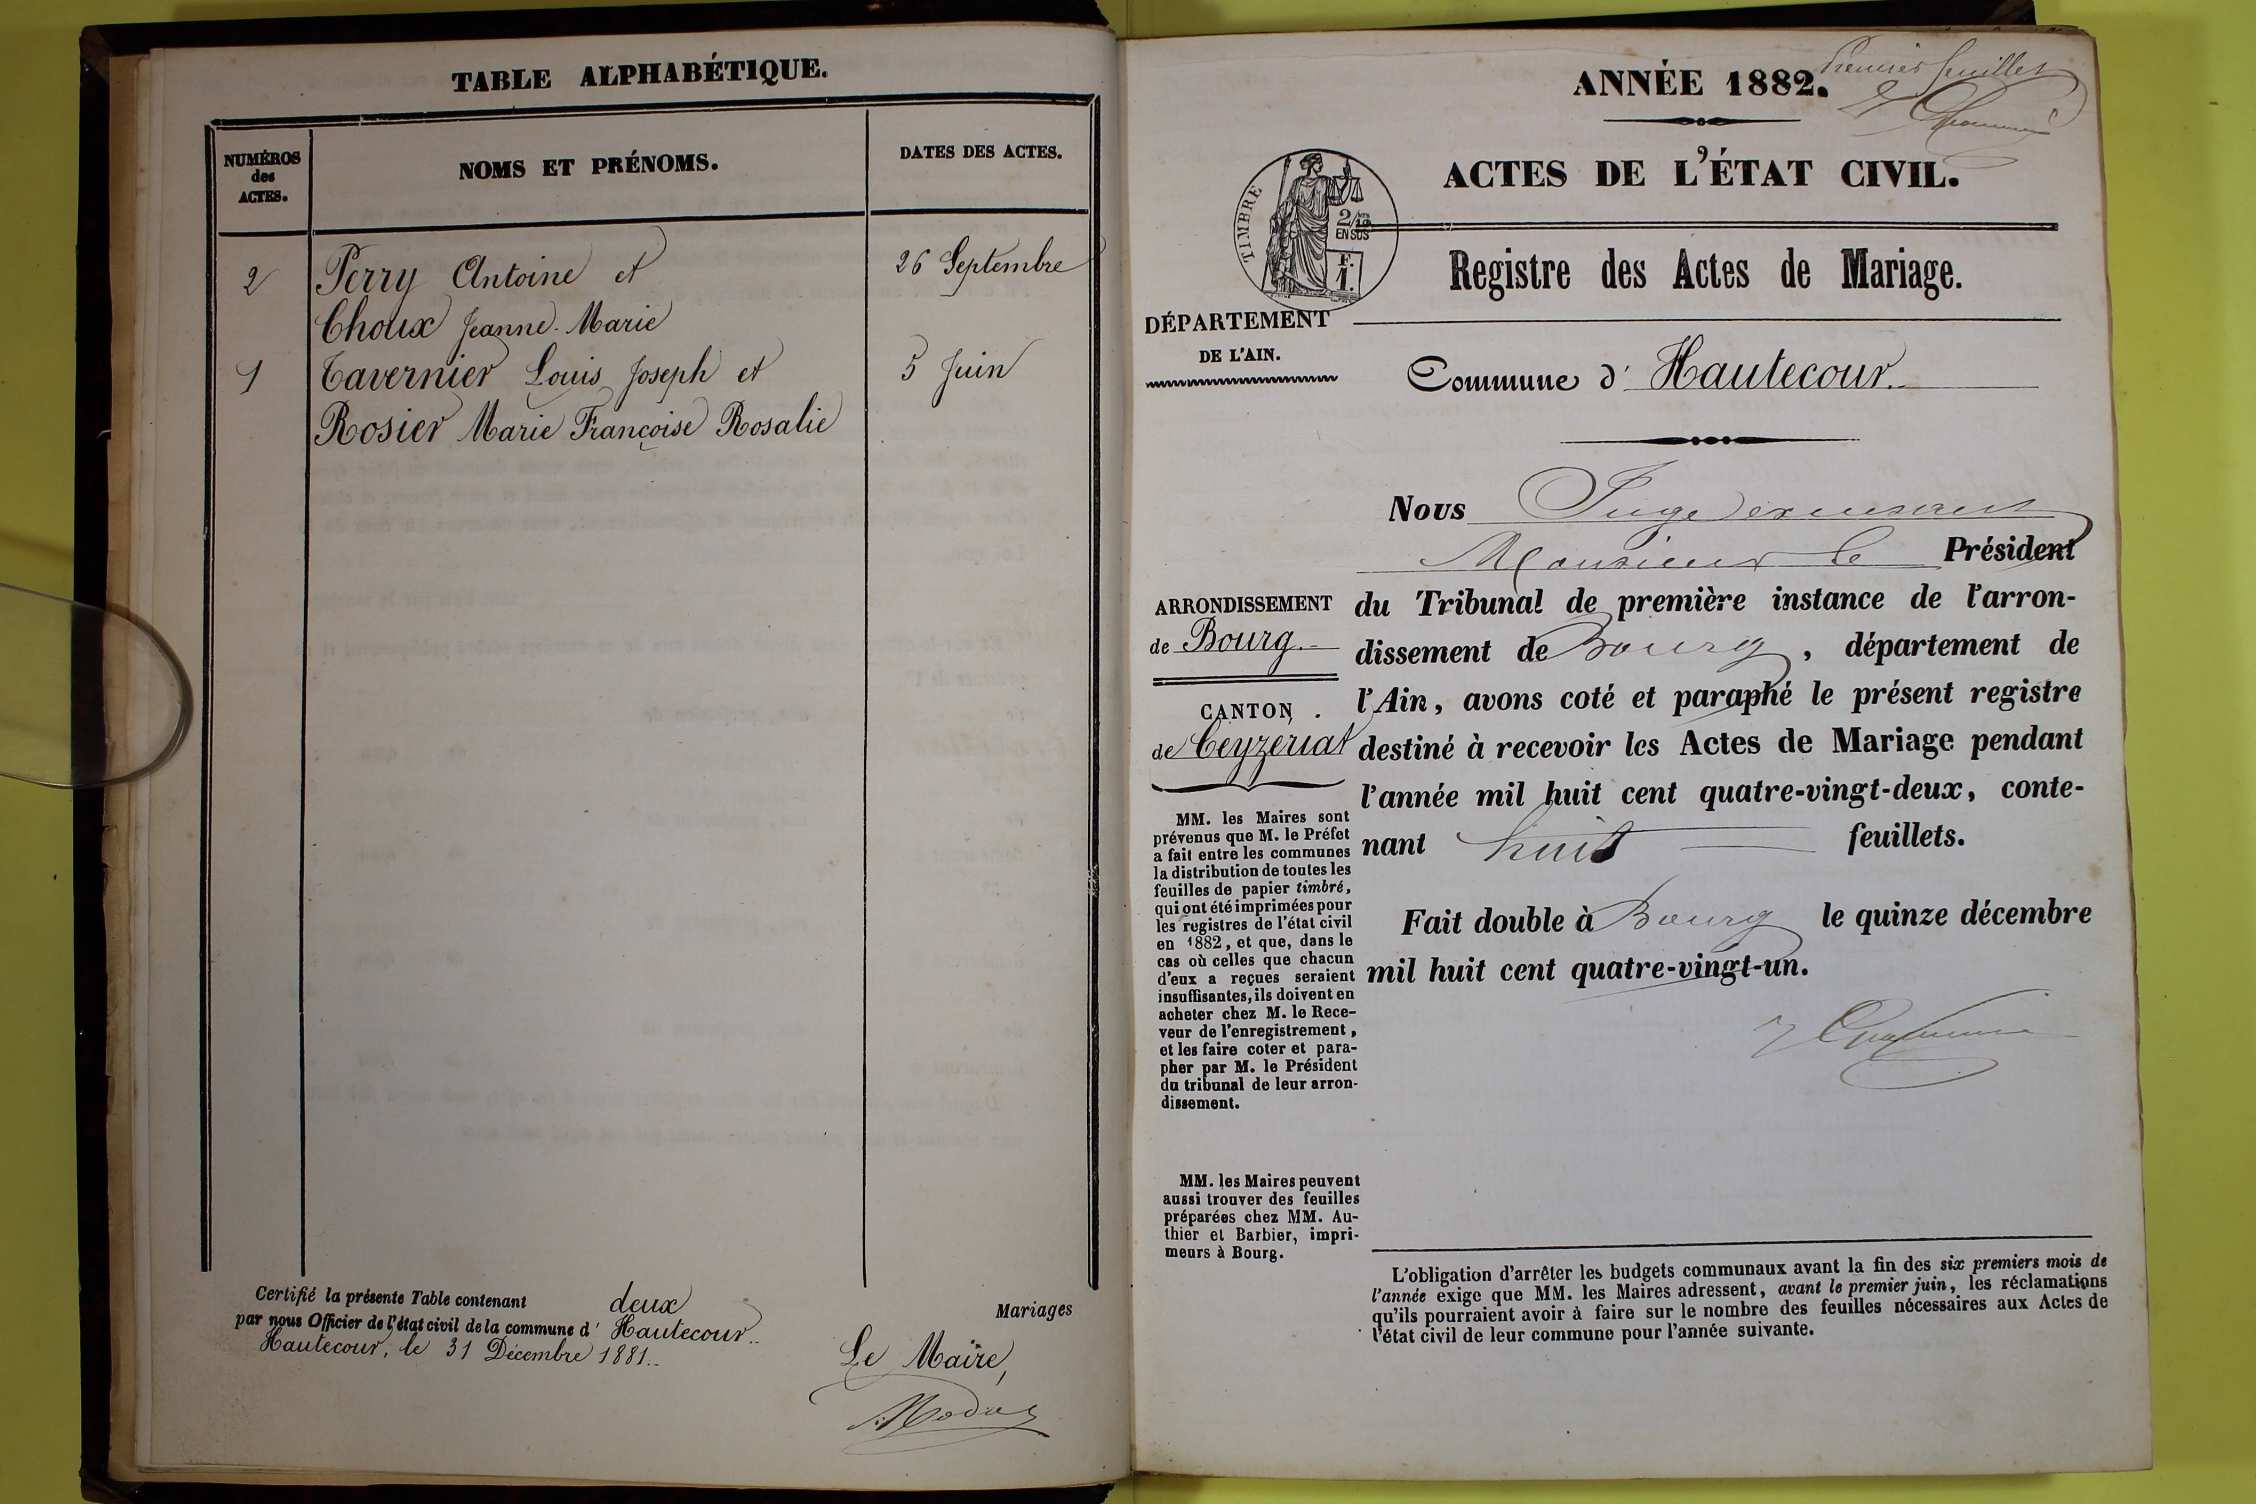 TABLE ALPHABÉTIQUE.
NUMÉROS
des
ACTES.
NOMS ET PRÉNOMS.
DATES DES ACTES.
2 Perry Antoine et 26 Septembre
Choux Jeanne-Marie
1 Tavernier Louis Joseph et 5 Juin
Rosier Marie Françoise Rosalie
Certifié la présente Table contenant deux Mariages
par nous Officier de l'état civil de la commune d' Hautecour.
Hautecour, le 31 Décembre 1881.
Le Maire,
Premier feuillet
ANNÉE 1882.
ACTES DE L'ÉTAT CIVIL.
TIMBRE
2/10
EN SUS
F.
1.
Registre des Actes de Mariage.
DÉPARTEMENT
DE L'AIN.
Commune d' Hautecour.
ARRONDISSEMENT
de Bourg.
CANTON
de Ceyzériat
MM. les Maires sont
prévenus que M. le Préfet
a fait entre les communes
la distribution de toutes les
feuilles de papier timbré,
qui ont été imprimées pour
les registres de l'état civil
en 1882, et que, dans le
cas où celles que chacun
d'eux a reçues seraient
insuffisantes, ils doivent en
acheter chez M. le Rece-
veur de l'enregistrement,
et les faire coter et para-
pher par M. le Président
du tribunal de leur arron-
dissement.
MM. les Maires peuvent
aussi trouver des feuilles
préparées chez MM. Au-
thier et Barbier, impri-
meurs à Bourg.
Nous Juge
Monsieur le Président
du Tribunal de première instance de l'arron-
dissement de Bourg, département de
l'Ain, avons coté et paraphé le présent registre
destiné à recevoir les Actes de Mariage pendant
l'année mil huit cent quatre-vingt-deux, conte-
nant huit feuillets.
Fait double à Bourg le quinze décembre
mil huit cent quatre-vingt-un.
L'obligation d'arrêter les budgets communaux avant la fin des six premiers mois de
l'année exige que MM. les Maires adressent, avant le premier juin, les réclamations
qu'ils pourraient avoir à faire sur le nombre des feuilles nécessaires aux Actes de
l'état civil de leur commune pour l'année suivante.